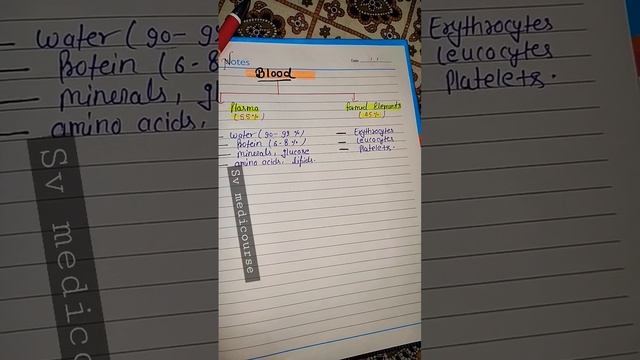 Notes
Date
Blood
Plasma
(55%)
Formed Elements
(45%)
— Water (90-92 %)
— Protein (6-8 %)
— minerals, glucose
— amino acids, lipids.
— Erythrocytes
— Leucocytes
— Platelets.
Sv medicourse
— Water (90-
Protein (6-8
— minerals, gl
— amino acids,
Sv medico
Erythrocytes
Leucocytes
Platelets.